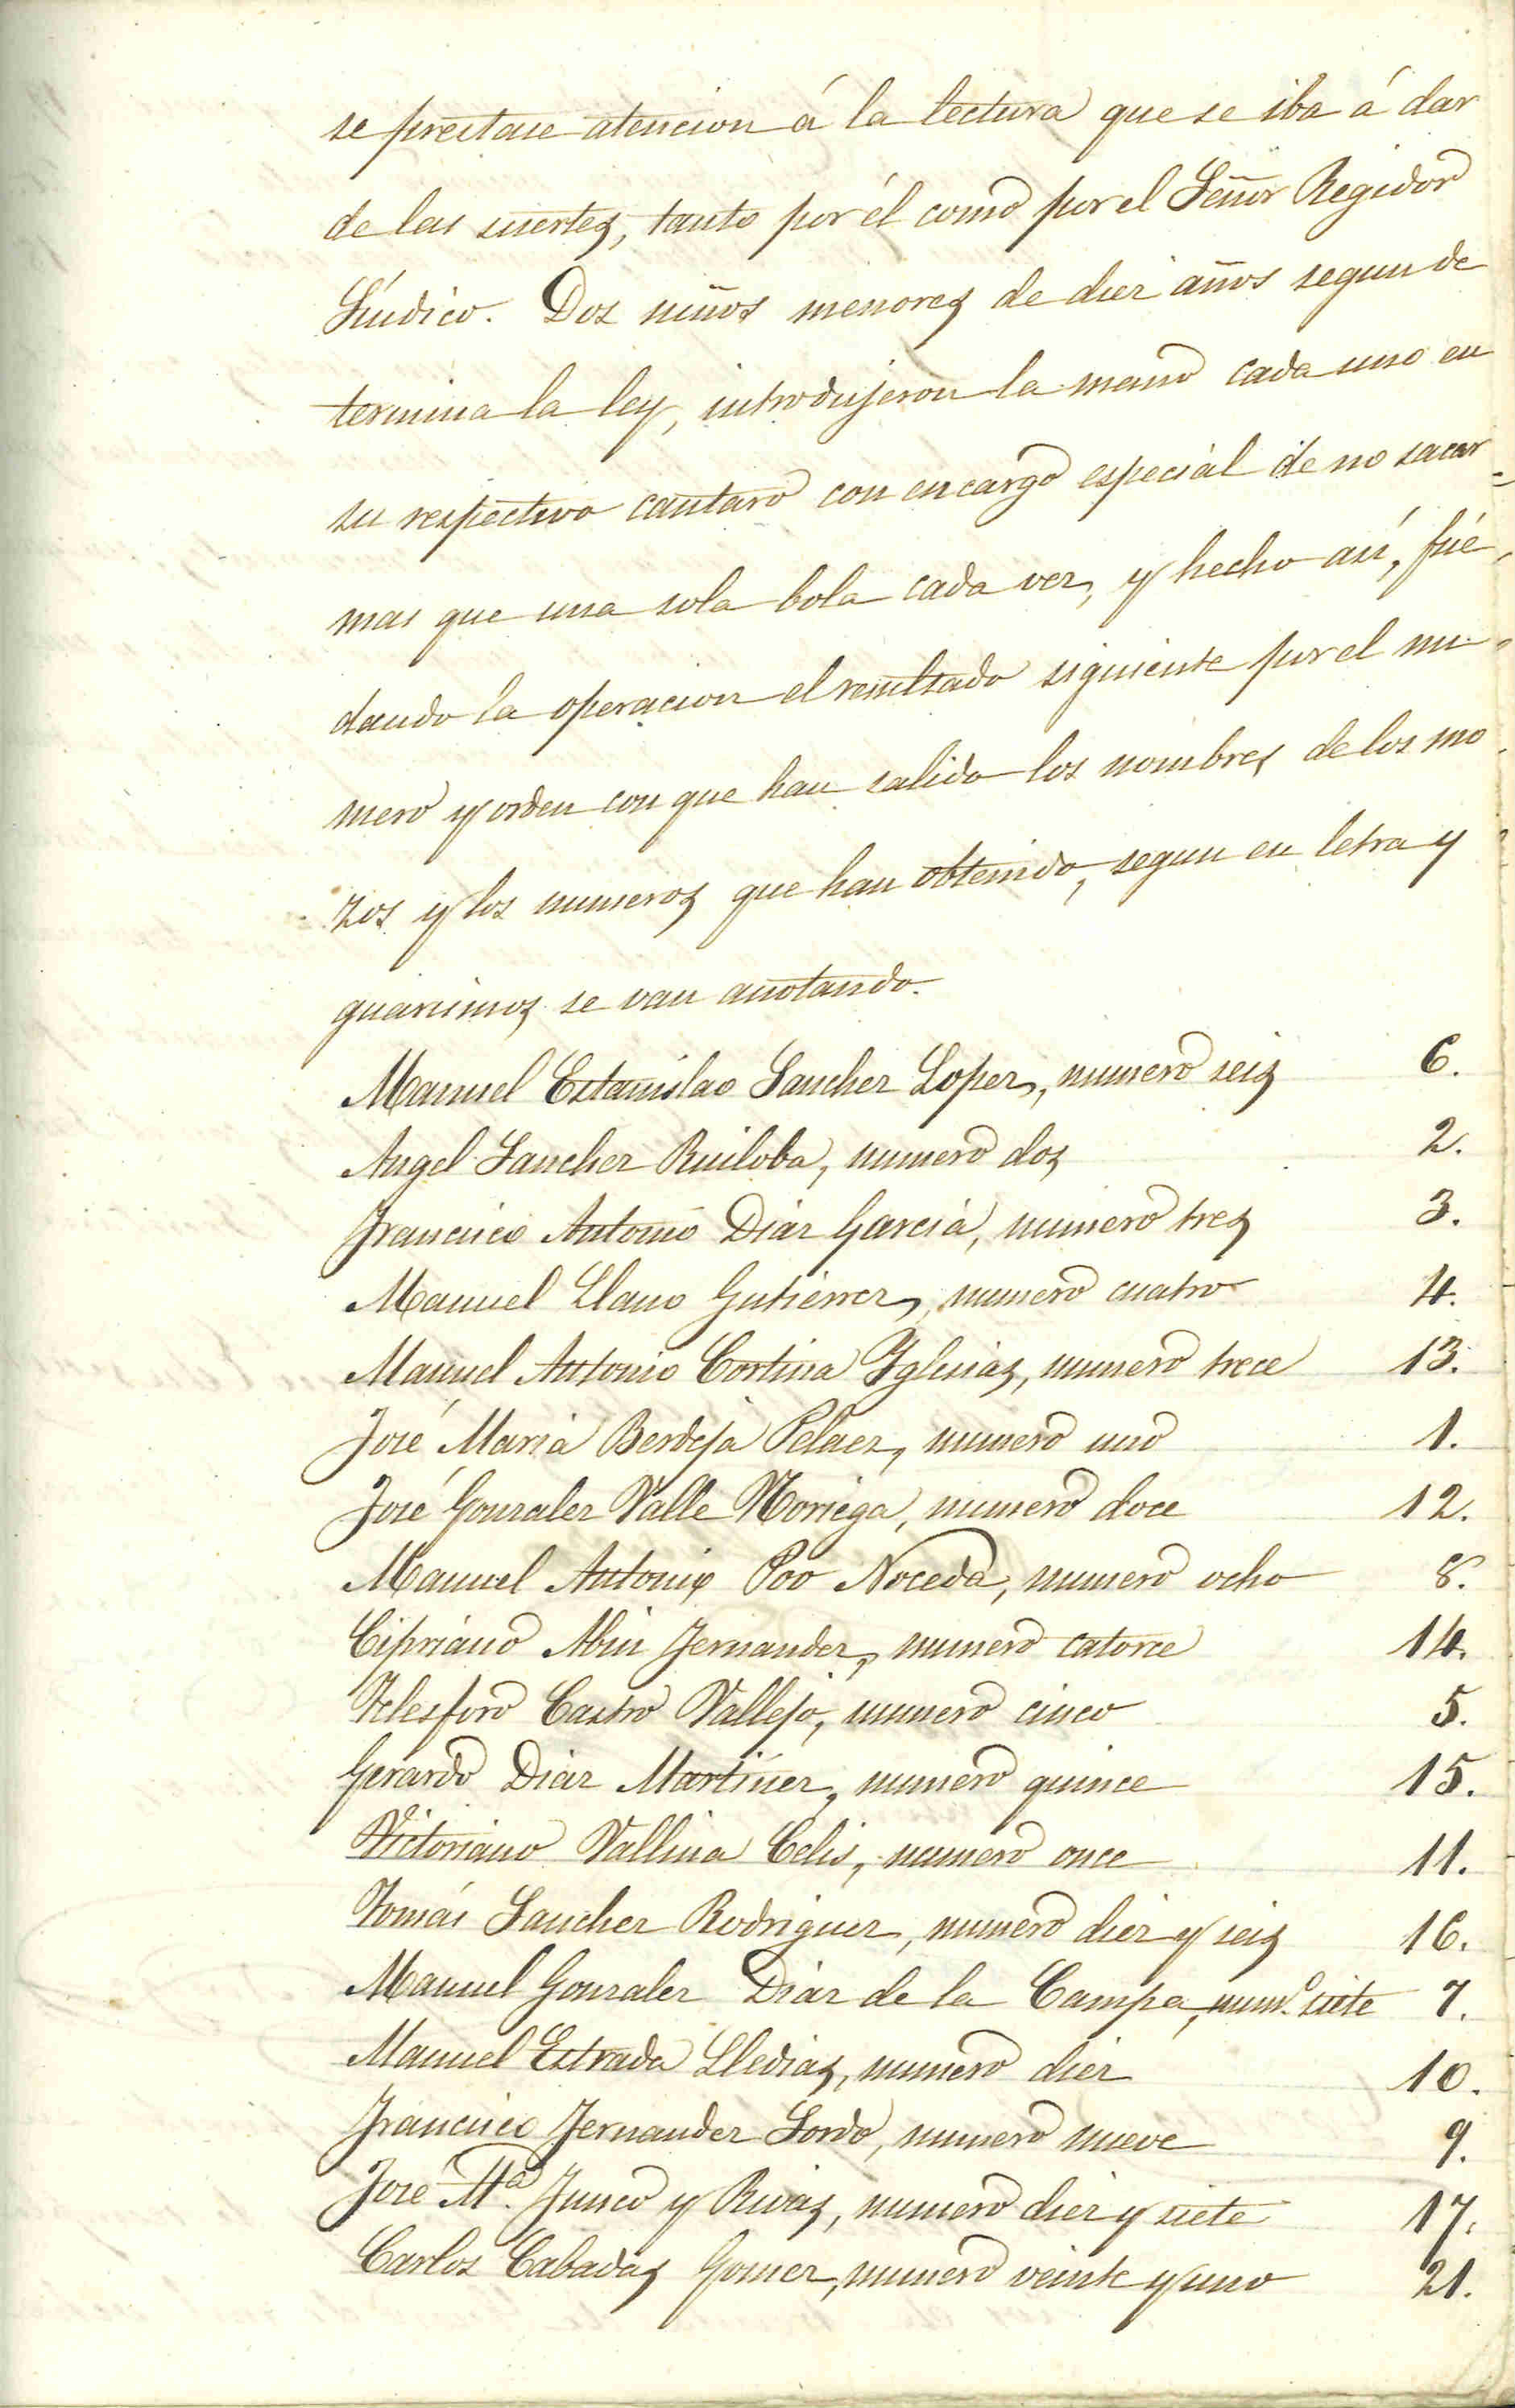 se prestase atencion á la lectura que se iba á dar
de las suertes, tanto por él como por el Señor Regidor
Síndico. Dos niños menores de diez años segun de
termina la ley, introdujeron la mano cada uno en
su respectivo cantaro con encargo especial de no sacar
mas que una sola bola cada vez, y hecho así, fué
dando la operacion el resultado siguiente por el nu-
mero y orden con que han salido los nombres de los mo
zos y los numeros que han obtenido, segun en letra y
guarismos se van anotando.
Manuel Estanislao Sanchez Lopez, numero seis 6.
Angel Sanchez Ruiloba, numero dos 2.
Francisco Antonio Diaz Garcia, numero tres 3.
Manuel Llano Gutierrez, numero cuatro 4.
Manuel Antonio Cortina Yglesias, numero trece 13.
José Maria Berdeja Pelaez, numero uno 1.
José Gonzalez Valle Noriega, numero doce 12.
Manuel Antonio Poo Noceda, numero ocho 8.
Cipriano Abin Fernandez, numero catorce 14.
Telesforo Castro Vallejo, numero cinco 5.
Gerardo Diaz Martinez, numero quince 15.
Victoriano Vallina Celis, numero once 11.
Tomás Sanchez Rodriguez, numero diez y seis 16.
Manuel Gonzalez Diaz de la Campa, num.º siete 7.
Manuel Estrada Lledias, numero diez 10.
Francisco Fernandez Sordo, numero nueve 9.
José M.ª Junco y Rivas, numero diez y siete 17.
Carlos Cabadas Gomez, numero veinte y uno 21.